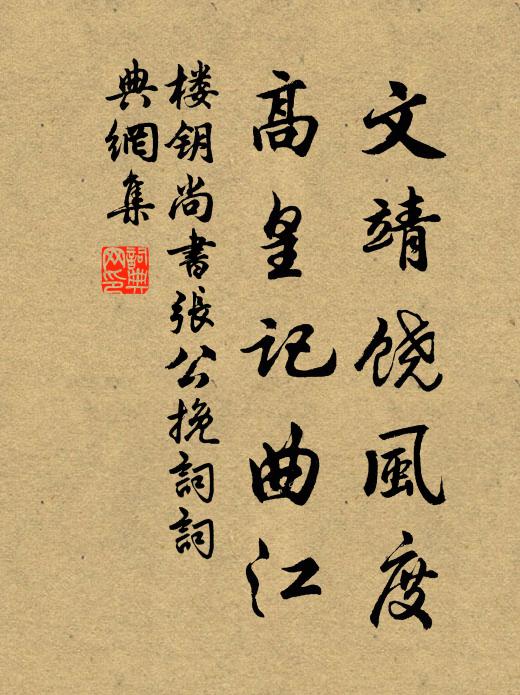 文靖饶風度
高皇记曲江
楼钥尚書張公挽詞詞
典網集
詞典网印